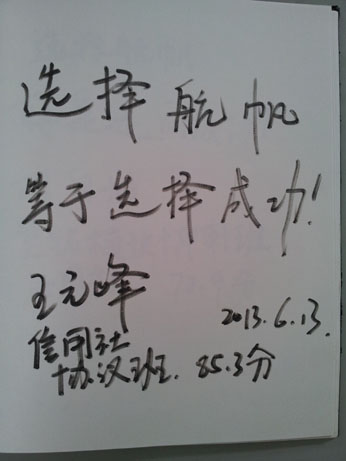 选择航帆
等于选择成功!
王元峰
2013.6.13.
信同社
协议班. 85.3分